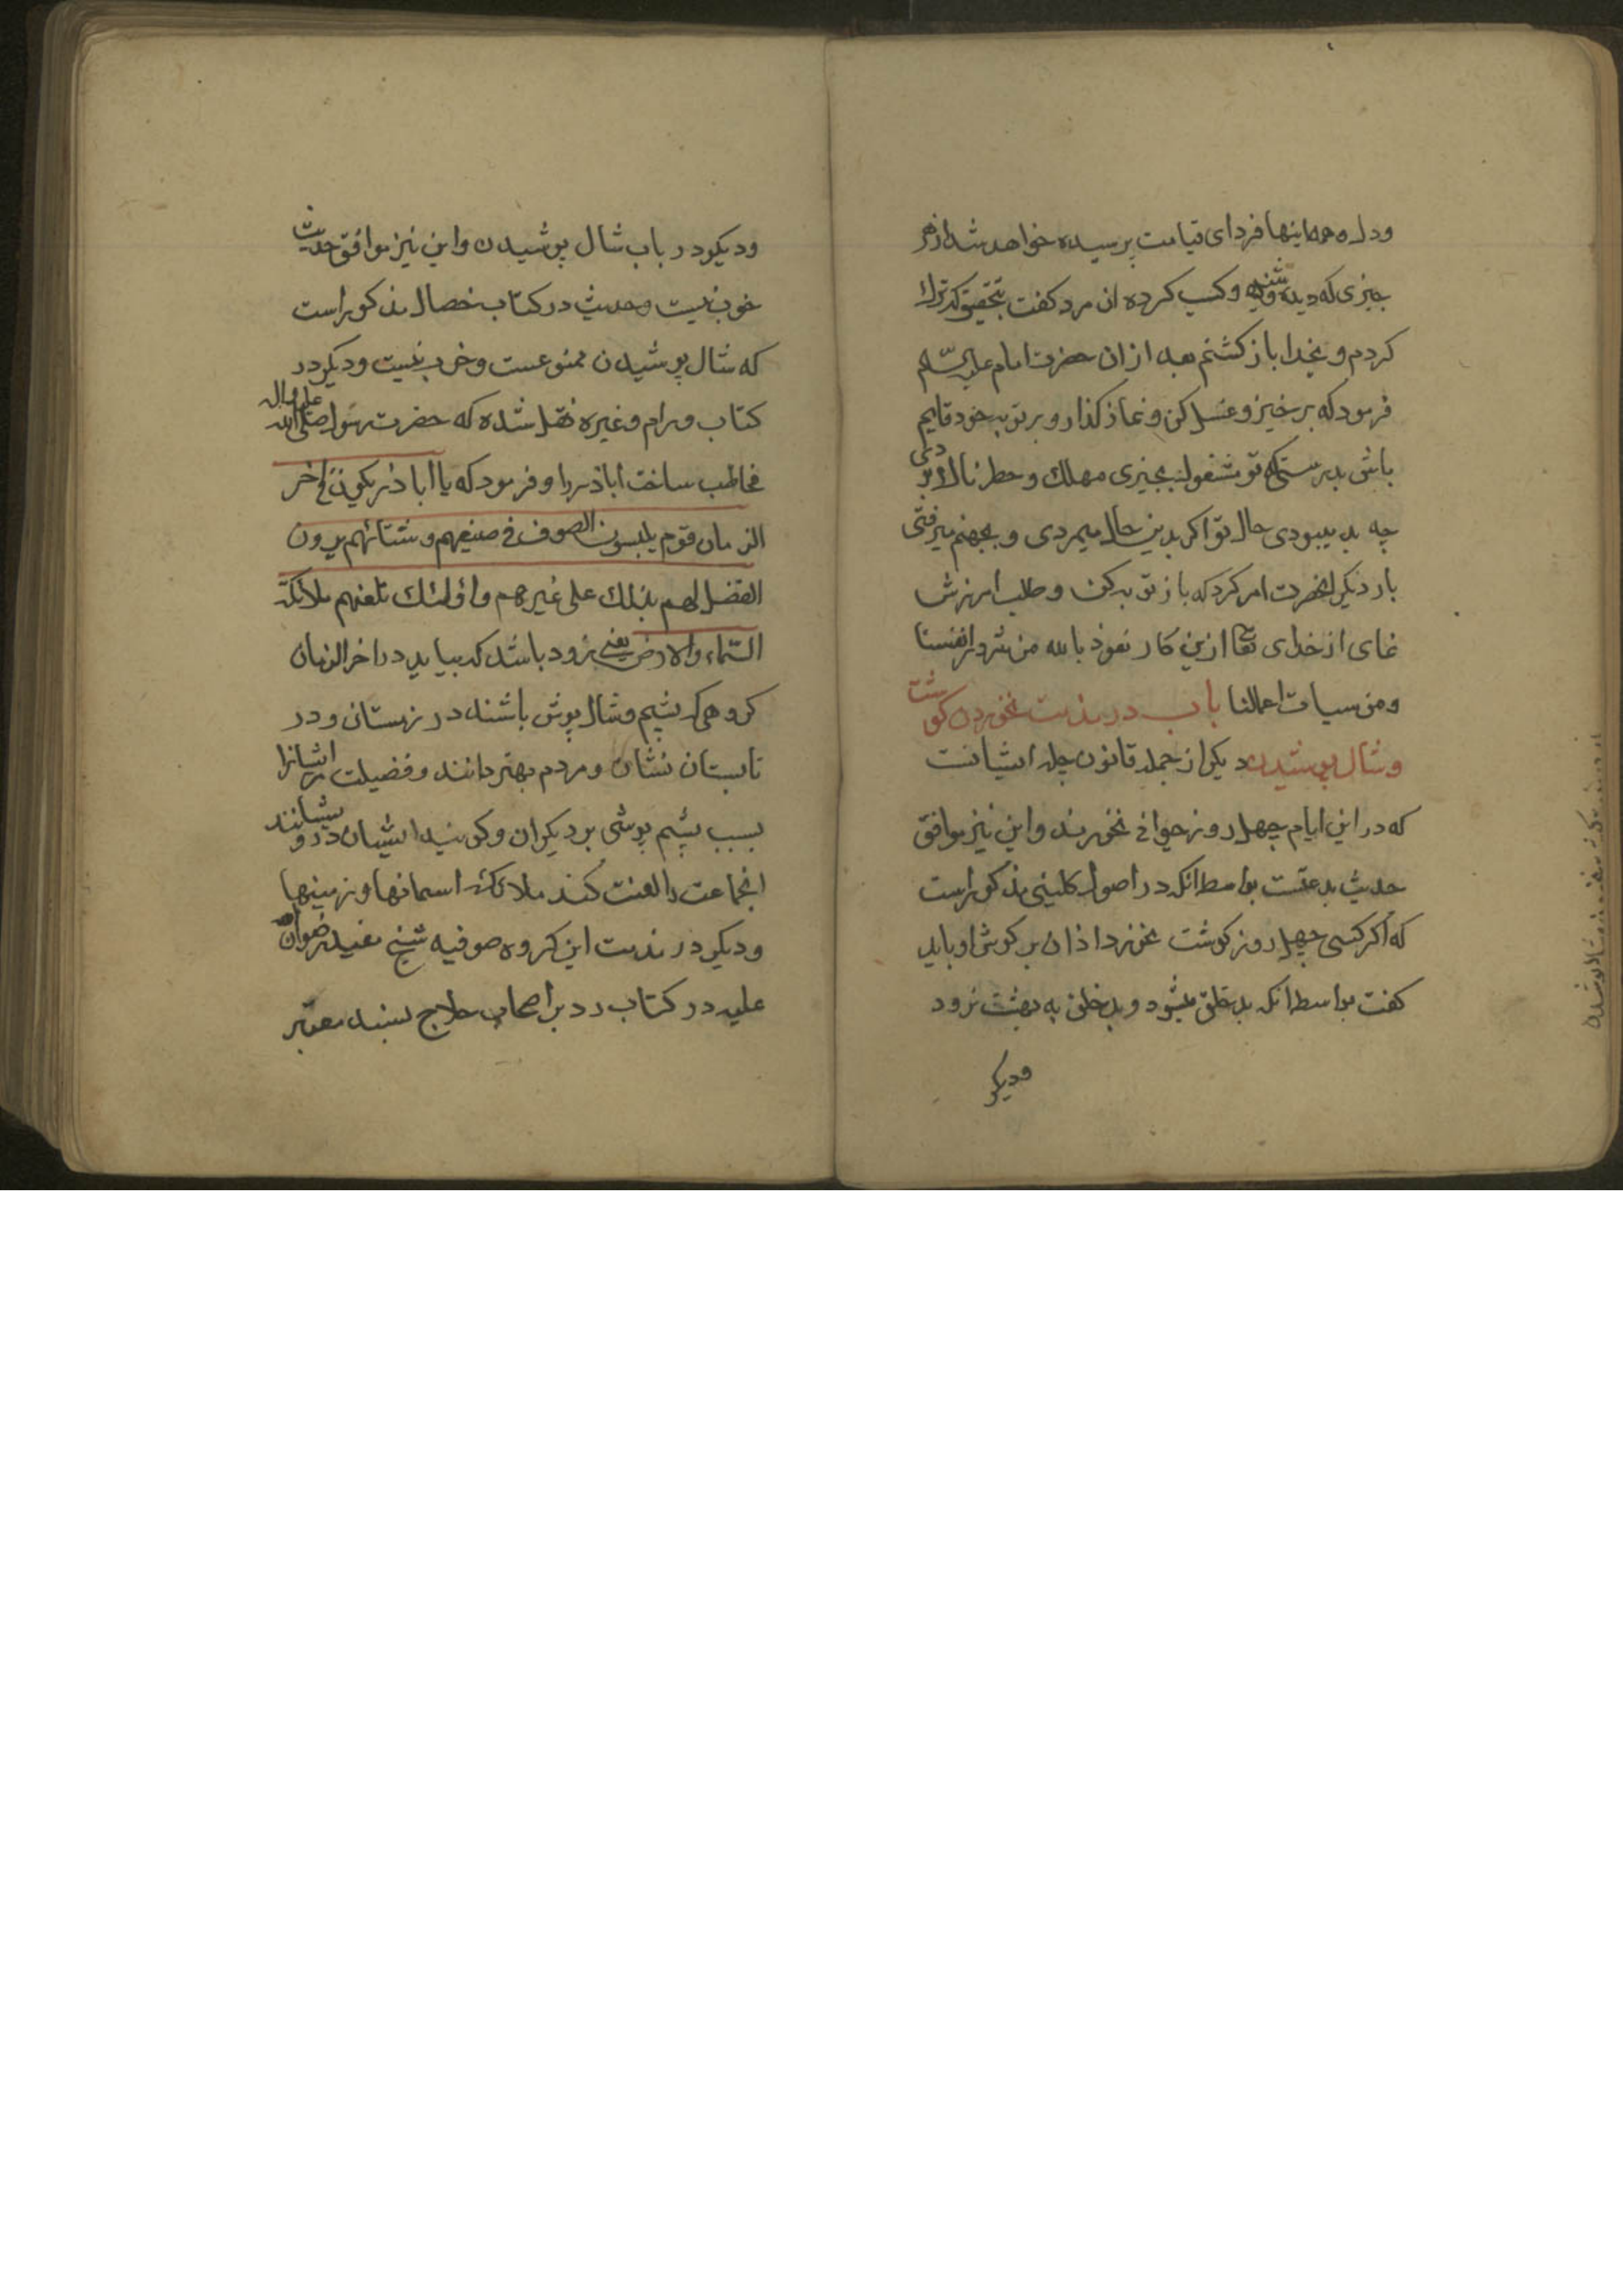 ودل و همه اینها فردای قیامت پرسیده خواهد شد از هر
چیزی که دیده و شنیده و کسب کرده ان مرد کفت بتحقیق که ترك
کردم و بخدا باز کشتم بعد از ان حضرت امام علیه السّلم
فرمود که برخیز و غسل کن و نماز کذار و بر توبه خود قایم
باش بدرستیکه تو مشغول بچیزی مهلك و خطرناك بودی
چه بد میبودی حال تو اکر بدین حال میمردی و بجهنم میرفتی
بار دیکر انحضرت امر کرد که باز توبه کن و طلب امرزش
نمای از خدای تعا ازین کار نعوذ بالله من شرور انفسنا
ومن سیات اعمالنا باب در مذمت نخوردن کوشت
و شال پوشیدن دیکر از جمله قانون چله ایشانست
که در این ایام چهل روز حیوانی نخورند و این نیز موافق
حدیث بدعتست بواسطه انکه در اصول کلینی مذکور است
که اکر کسی چهل روز کوشت نخورد اذان بر کوش او باید
کفت بواسطه انکه بدخلق میشود و بدخلق به بهشت نرود
ودیکر
ودیکر در باب شال پوشیدن و این نیز موافق حدیث
خوب نیست و حدیث در کتاب خصال مذکور است
که شال پوشیدن ممنوعست و خوب نیست و دیکر در
کتاب ورام و غیره نقل شده که حضرت رسول صلی الله علیه واله
مخاطب ساخت اباذر را و فرمود که یا اباذر یکون فی اخر
الزمان قوم یلبسون الصوف فی صیفهم و شتائهم یرون
الفضل لهم بذلك علی غیرهم و اولئك تلعنهم ملائکة
السّماء والارض یعنی زود باشد که بیاید در اخر الزمان
کروهی که پشم و شال پوش باشند در زمستان و در
تابستان نشان و مردم بهتر دانند و فضیلت ایشانرا
بسبب پشم پوشی بر دیکران و کویند ایشان درویشانند
انجماعت را لعنت کند ملائکه اسمانها و زمینها
ودیکر در مذمت این کروه صوفیه شیخ مفید رضوان الله
علیه در کتاب رد بر اصحاب حلاج بسند معتبر